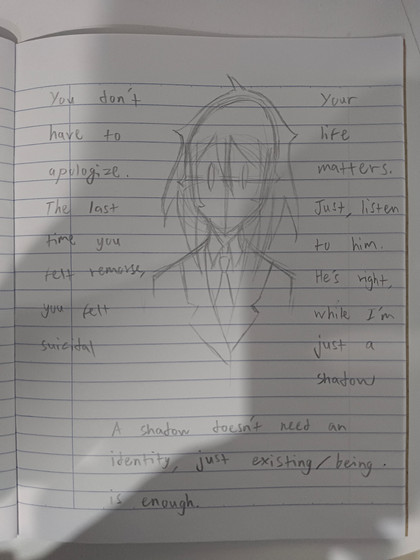 You don't
have to
apologize.
The last
time you
felt remorse,
you felt
suicidal
Your
life
matters.
Just, listen
to him.
He's right,
while I'm
just a
shadow
A shadow doesn't need an
identity, just existing/being.
is enough.